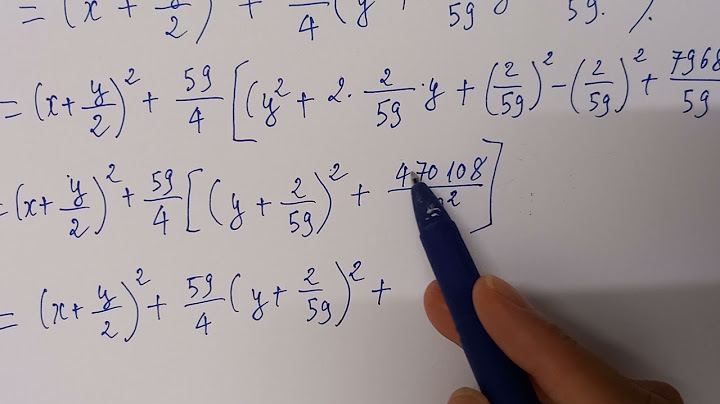 = (x + y/2) + /4 (y + /59 /59.
= (x + y/2)² + 59/4 [(y² + 2 · 2/59 · y + (2/59)² - (2/59)² + 7968/59
= (x + y/2)² + 59/4 [(y + 2/59)² + 470108/ ²]
= (x + y/2)² + 59/4 (y + 2/59)² +